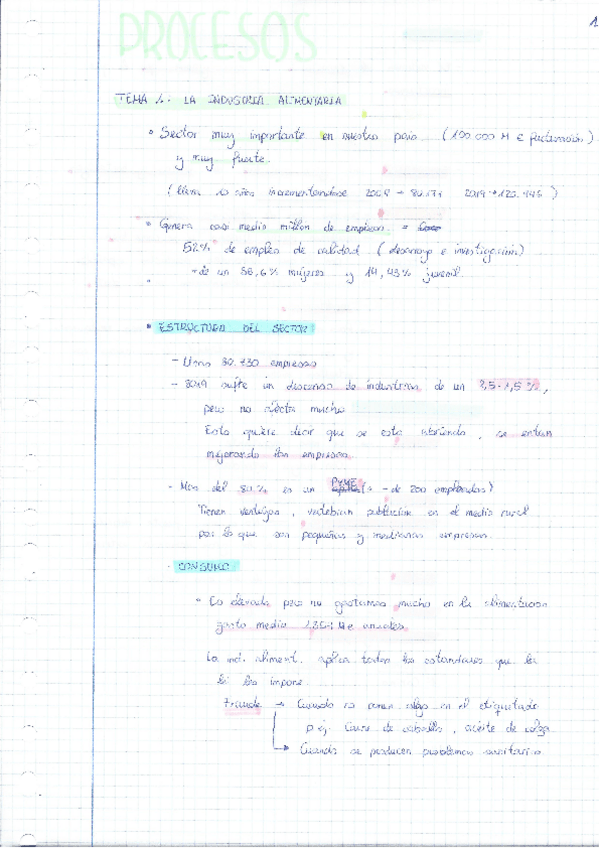 1
PROCESOS
TEMA 1: LA INDUSTRIA ALIMENTARIA
• Sector muy importante en nuestro pais (100.000 M € facturación)
y muy fuerte.
(lleva 10 años incrementandose 2009 → 80.177 2019 →
• Genera casi medio millon de empleos.
52% de empleo de calidad (desarroyo e investigación)
→ de un 36,6% mujeres y 14,43% juvenil.
• ESTRUCTURA DEL SECTOR
- Unas 30.730 empresas
- 2019 sufre un descenso de industrias de un 2,5-1,5%,
pero no afecta mucho
Esto quiere decir que se esta
mejorando las empresas.
- Mas del 80% es un PYME (- de 200 empleados)
Tienen ventajas, vertebran poblacion en el medio rural
por lo que son pequeñas y medianas empresas.
· CONSUMO
• Es elevado pero no gastamos mucho en la alimentacion
gasto medio € anuales
La ind. aliment. aplica todos los estandares que la
lei les impone.
Fraude → Cuando no ponen algo en el etiquetado
p ej. Carne de caballo, aceite de colza
→ Cuando se producen problemas sanitarios